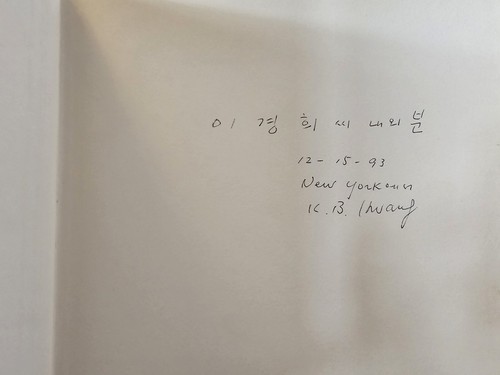 이 경 희 씨 내외분
12-15-93
New York에서
K.B. Hwang